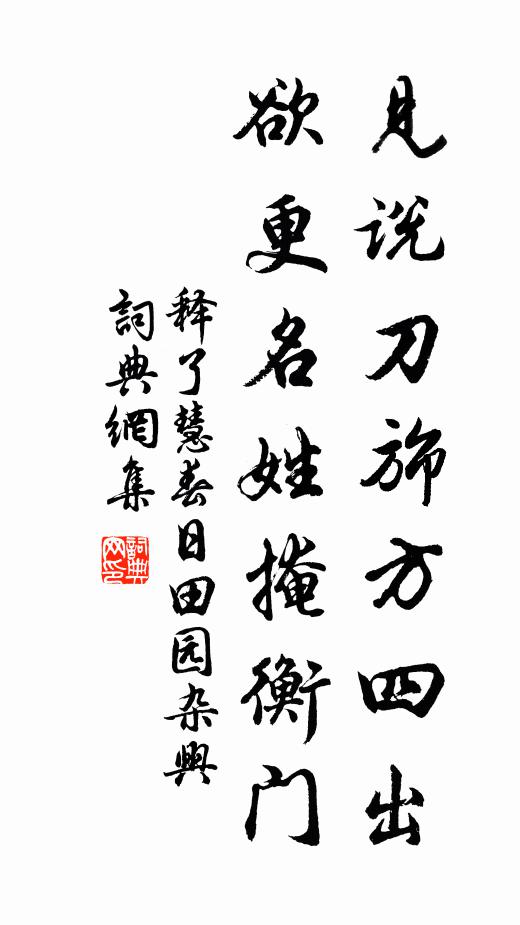 见说刀斾方四出
欲更名姓掩衡门
释了慧春日田园杂興
詞典網集
詞典网印